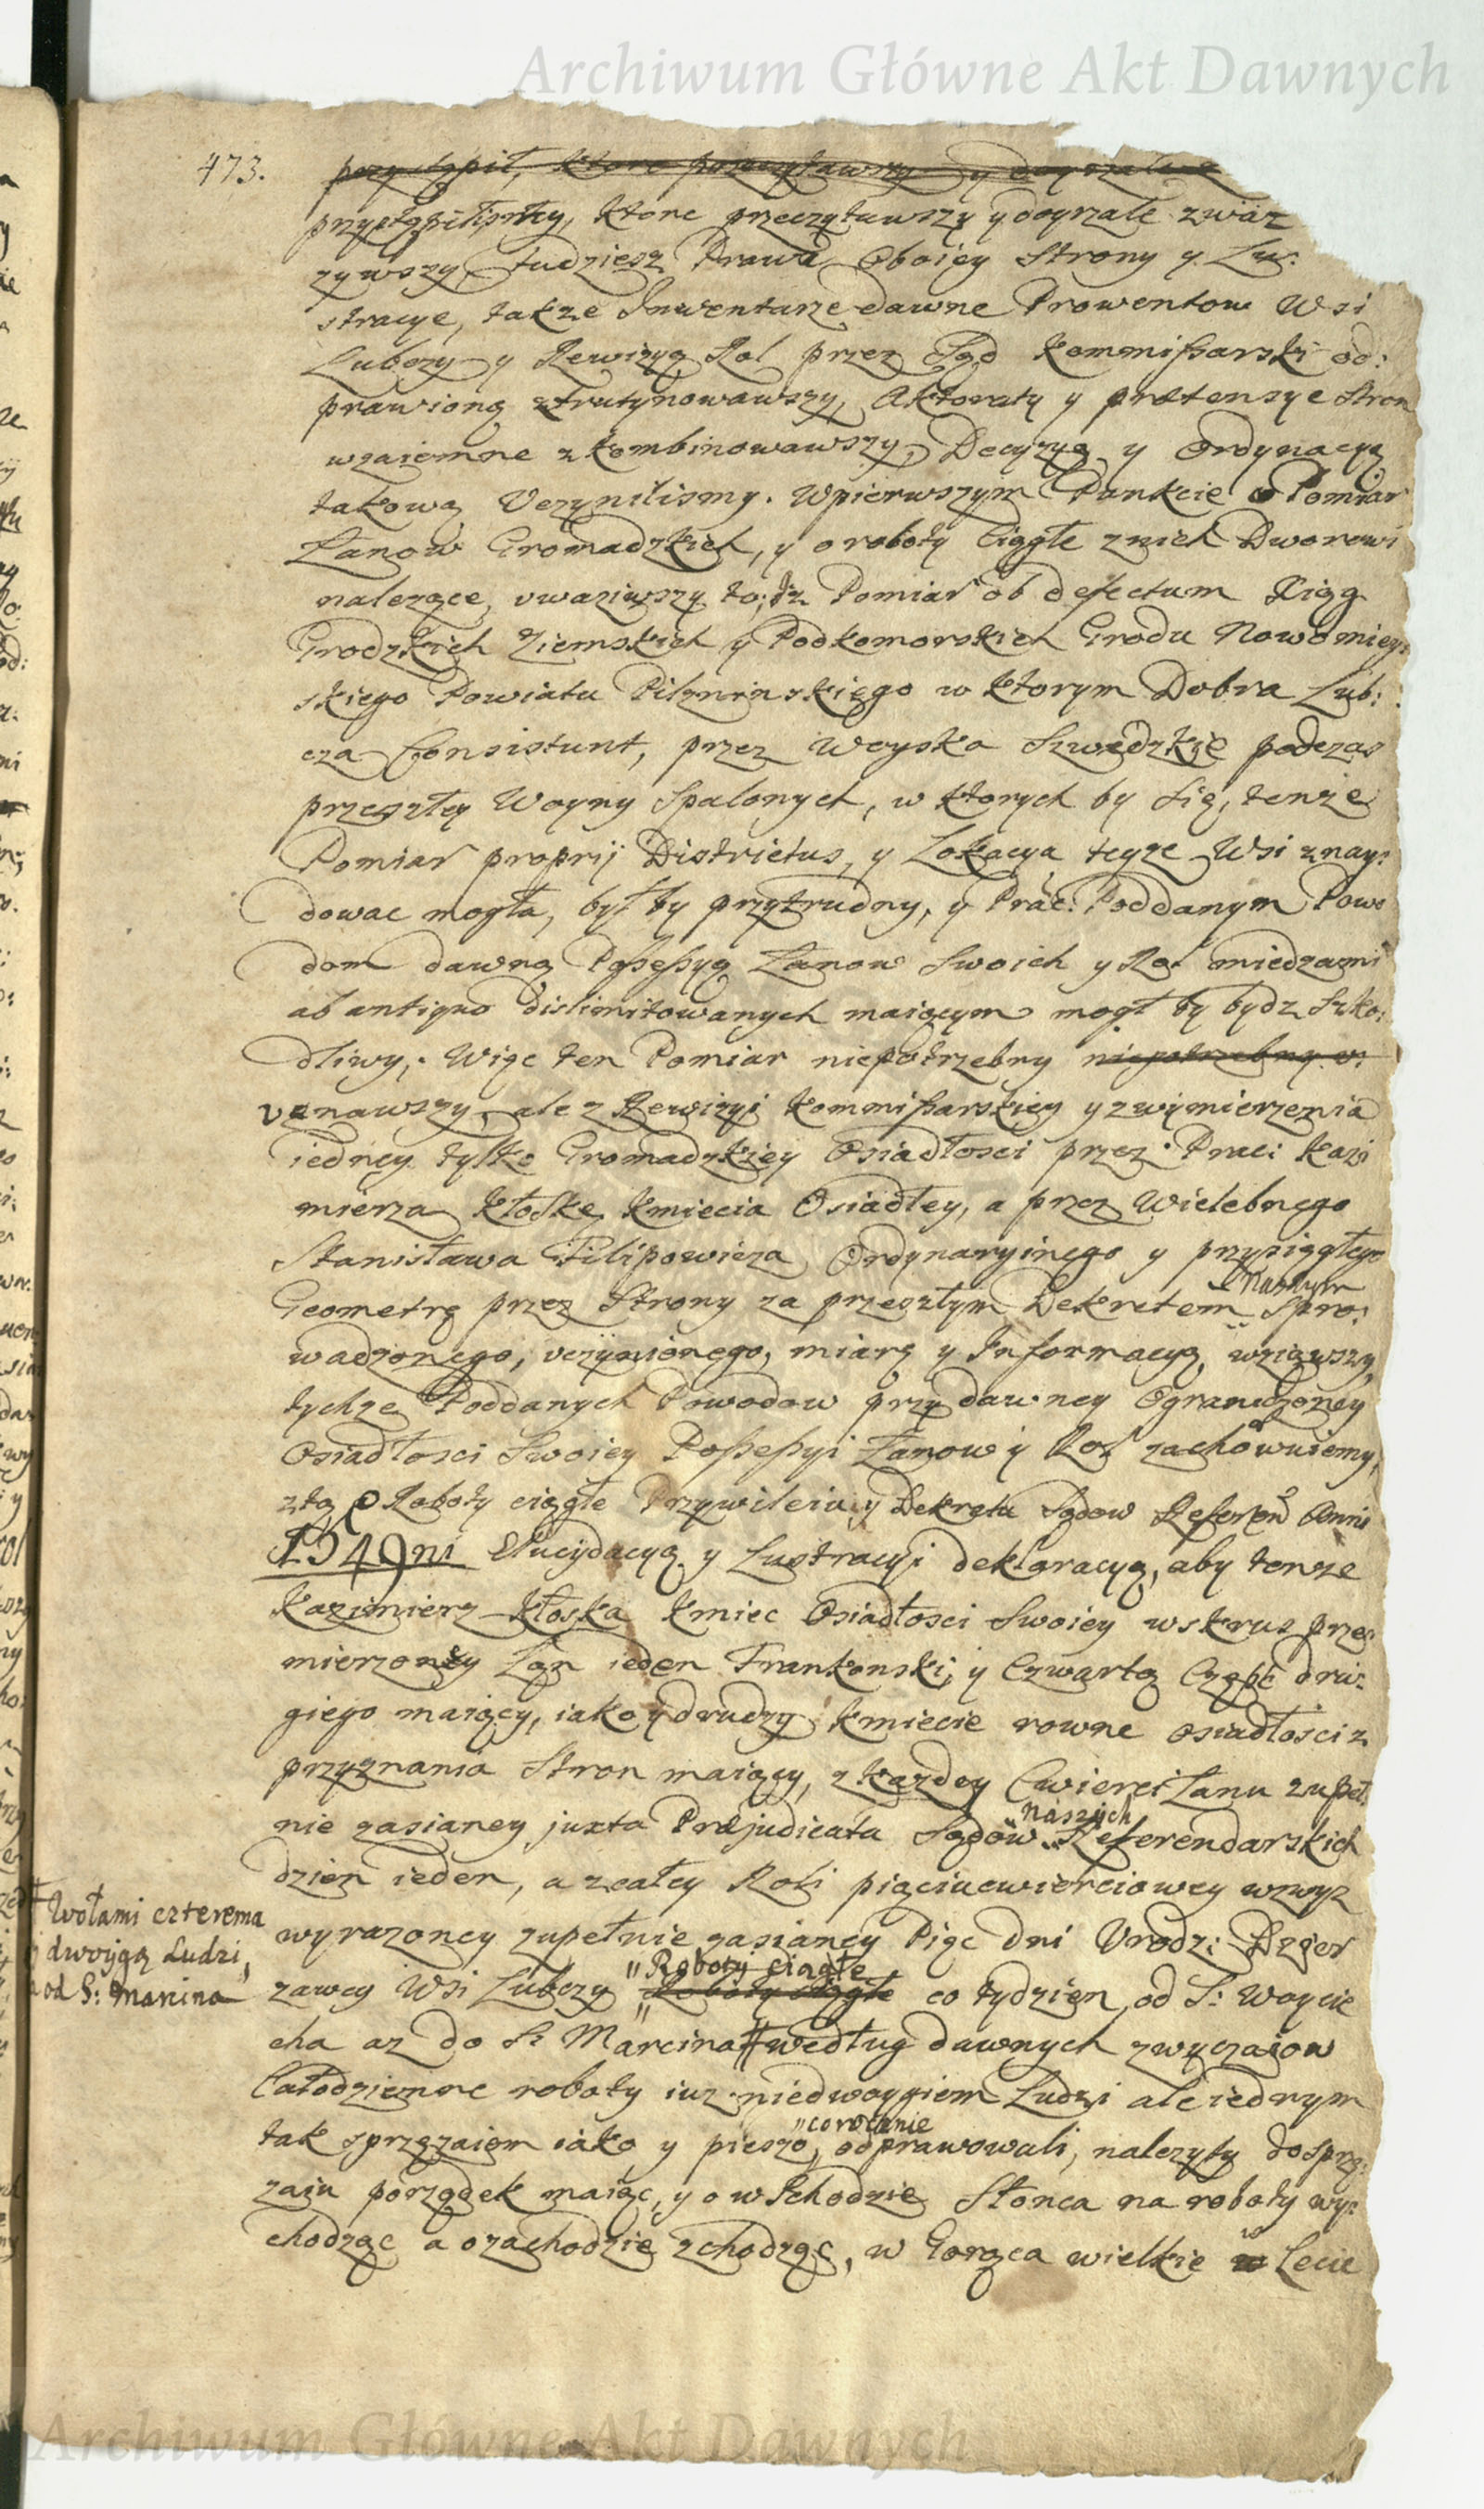 Archiwum Główne Akt Dawnych
473.
przystąpił, ktore przeczytawszy y doyrzale
przystąpilismy, ktore przeczytawszy y doyrzale zwaz
zywszy, tudziesz Prawa Oboiey Strony y Lu:
stracye, takze Inwentarze dawne Prowentow Wsi
Lubczy y Rewizyą Rol przez Sąd Kommissarski od:
prawioną ztrutynowawszy, Aktoraty y prætensye Stron
wzaiemne zkombinowawszy, Decyzyą y Ordynacyą
takową Uczynilismy. Wpierwszym Punkcie o Pomiar
Łanow Gromadzkich, y o roboty Ciągłe znich Dworowi
nalezące, uwaziwszy to, iz Pomiar ob defectum Xiąg
Grodzkich Ziemskich y Podkomorskich Grodu Nowomiey:
skiego Powiatu Pilzninskiego w ktorym Dobra Lub:
cza Consistunt, przez Woyska Szwedzkie podczas
przeszłey Woyny Spalonych, w ktorych by się, tenze
Pomiar proprij Districtus, y Lokacya teyze Wsi znay:
dowac mogła, był by przytrudny, y Prac: Poddanym Powo
dom dawną Possessyą Łanow Swoich y Rol miedzami
ab antiquo dislimitowanych maiącym mogł by bydz Szko:
dliwy; Więc ten Pomiar niepotrzebny niepotrzebny u:
uznawszy, ale z Rewizyi Kommissarskiey y zwymierzenia
iedney tylko Gromadzkiey Osiadłosci przez Prac: Kazi
mierza Kłoskę Kmiecia Osiadłey, a przez Wielebnego
Stanisława Filipowicza Ordynaryinego y przysięgłego
Naszym
Geometrę przez Strony za przeszłym Dekretem Spro:
wadzonego, uczynionego, miarę y Informacyą, wziąwszy,
tychze Poddanych Powodow przy dawney Ograniczoney
Osiadłosci Swoiey Possessyi Łanow y Rol zachowuiemy,
ztą o Roboty ciągłe Przywileiu y Dekretu Sądow Referen Anni
1549ni Elucydacyą y Lustracyi deklaracyą, aby tenze
Kazimierz Kłoska Kmiec Osiadłosci Swoiey wskrus prze:
mierzoney Łan ieden Frankonski, y Czwartą Część dru:
giego maiący, iako y drudzy Kmiecie rowne osiadłosci z
przyznania Stron maiący, z kazdey Cwierci Łanu zupeł
naszych
nie zasianey juxta Præjudicata Sądow Referendarskich
dzien ieden, a z całey Roli pięciucwierciowey wzwyz
wyrazoney zupełnie zasianey Pięc dni Urodz: Dzier
Roboty ciągłe
zawcy Wsi Lubczy Roboty ciągłe co tydzien, od S: Woycie
cha az do S: Marcina # według dawnych zwyczaiow
Całodzienne roboty iuz niedwoygiem Ludzi ale iednym
corocznie
tak sprzęzaiem iako y pieszo, odprawowali, nalezyty do sprzę:
zaiu porządek maiąc, y o wschodzie Słonca na roboty wy:
chodząc a o zachodzie zchodząc, w Gorąca wielkie w Lecie
Wołami czterema
y dwoygą Ludzi,
a od S: Marcina
Archiwum Główne Akt Dawnych